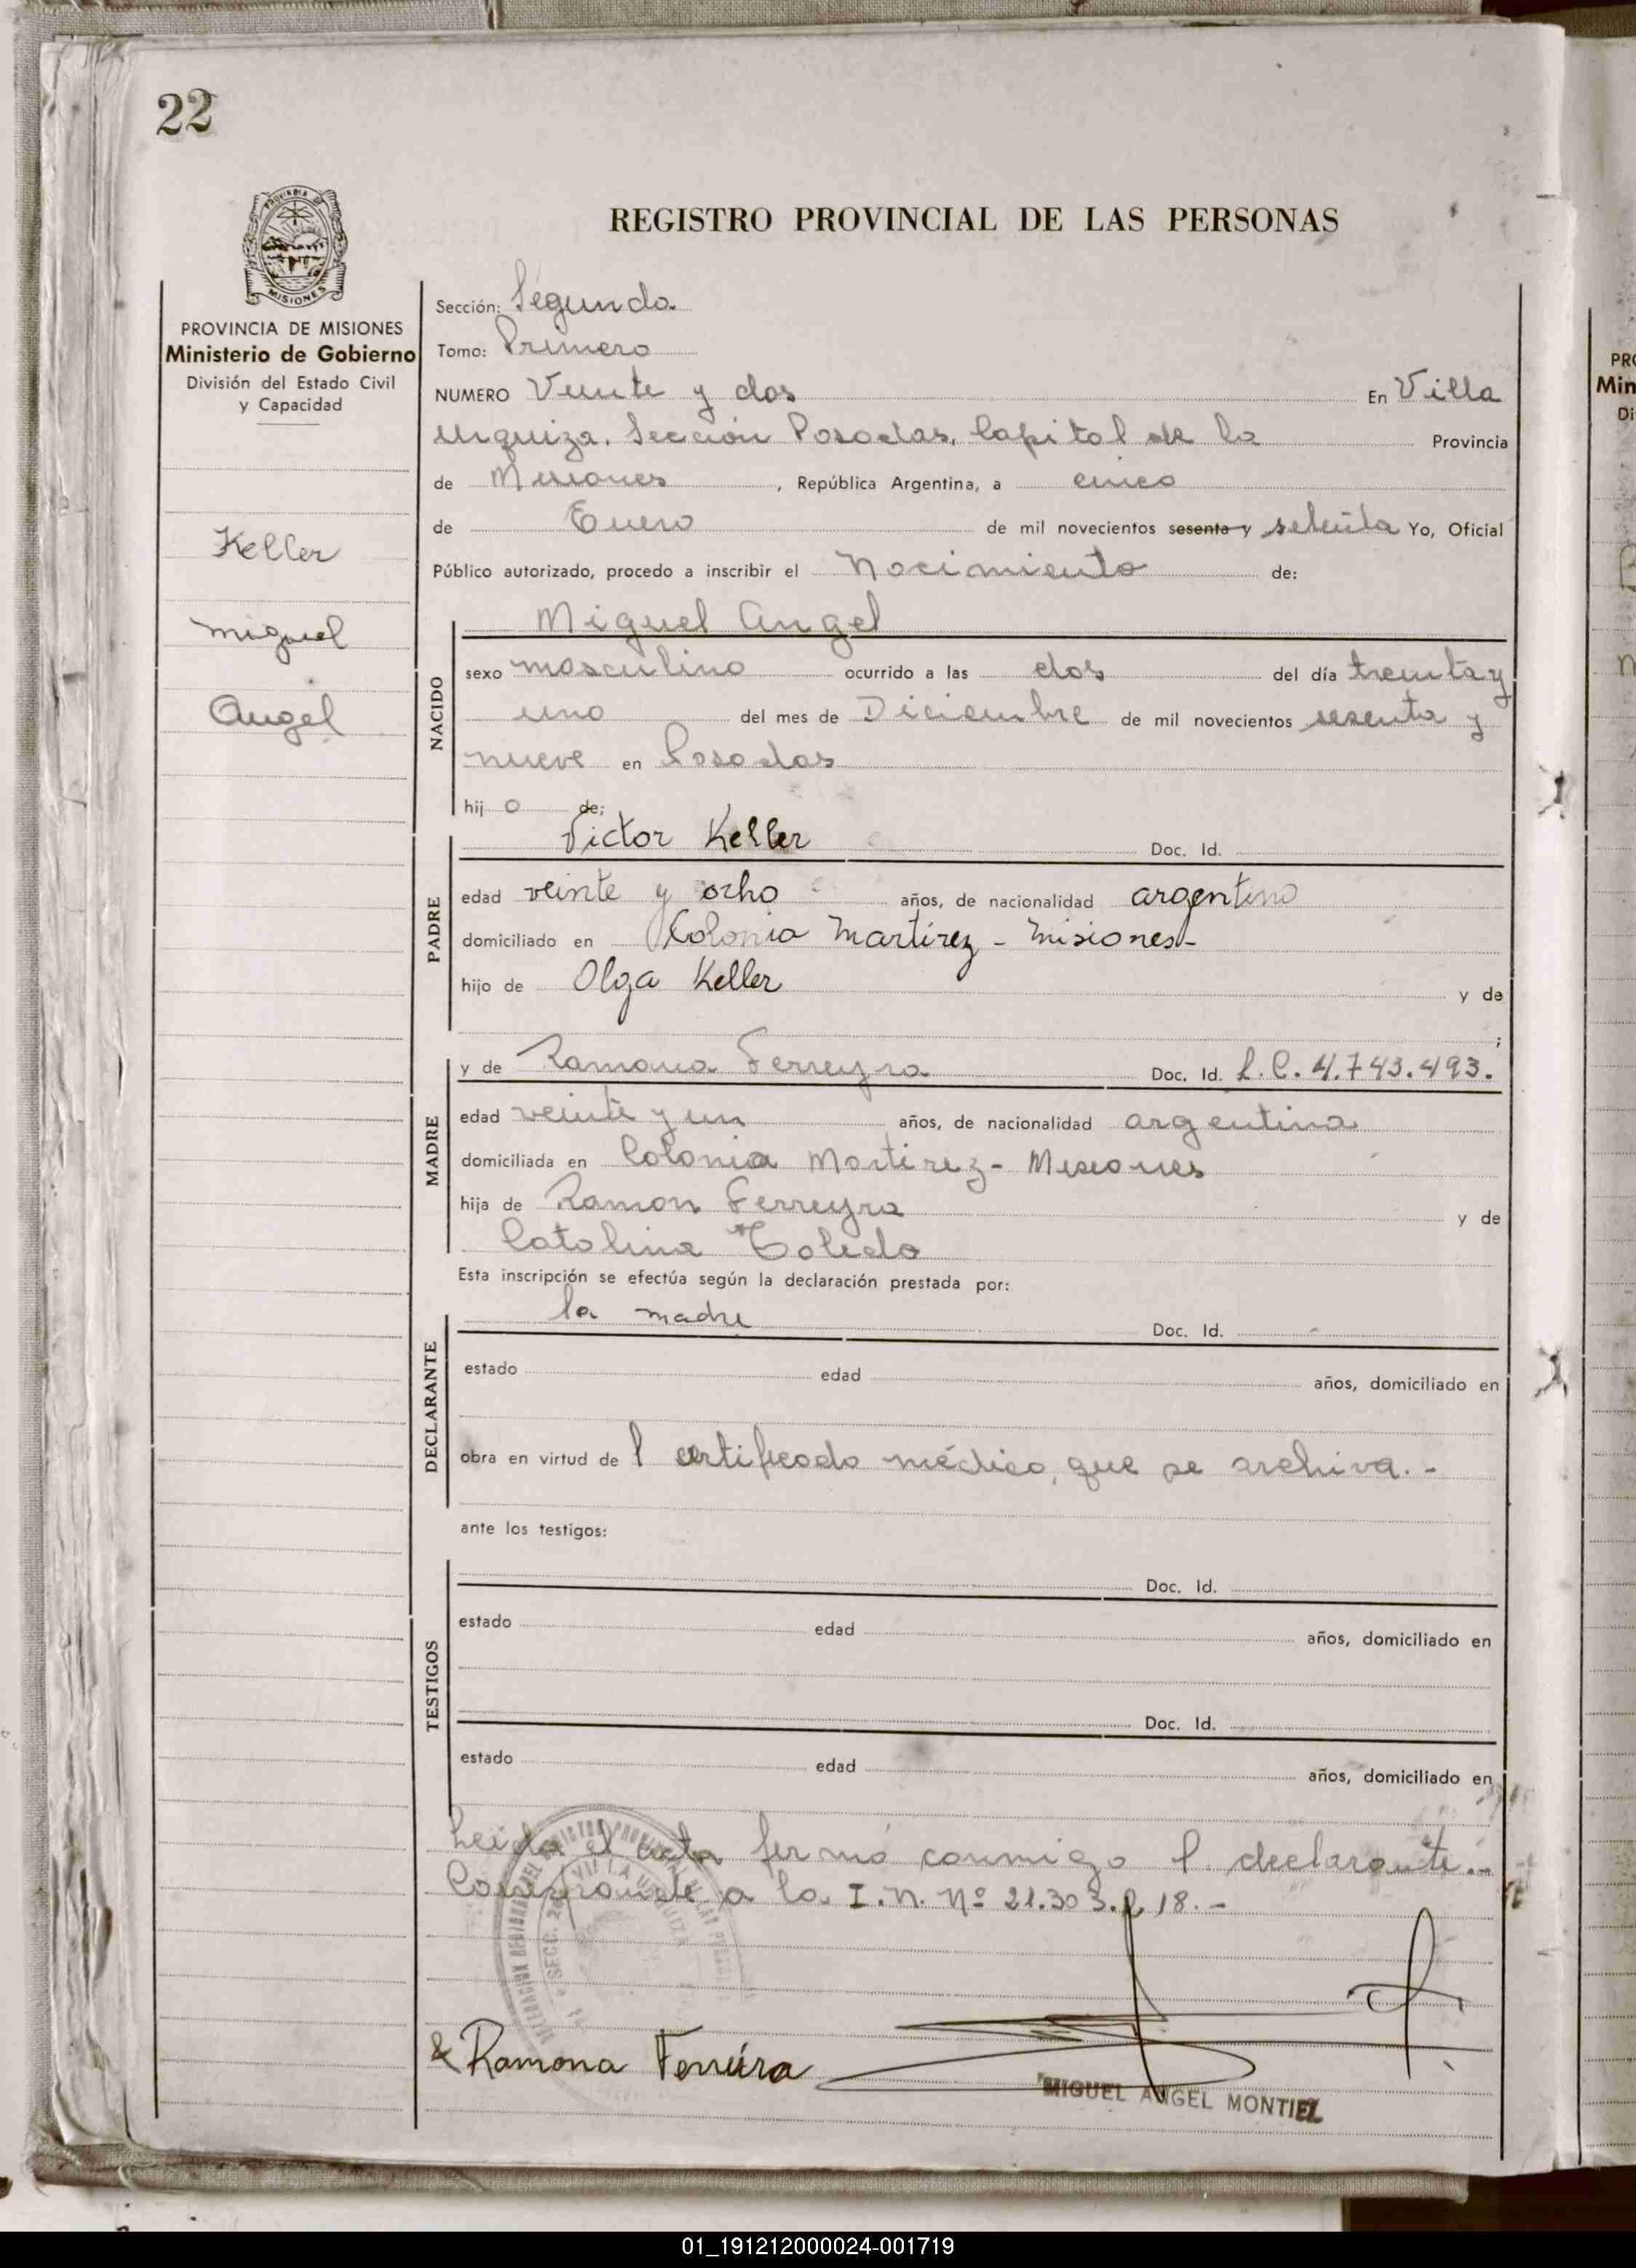 22
PROVINCIA
MISIONES
REGISTRO PROVINCIAL DE LAS PERSONAS
PROVINCIA DE MISIONES
Ministerio de Gobierno
División del Estado Civil
y Capacidad
Keller
Miguel
Angel
Sección: Segunda
Tomo: Primero
NUMERO Veinte y dos En Villa
Urquiza, Sección Posadas, Capital de la Provincia
de Misiones, República Argentina, a cinco
de Enero de mil novecientos sesenta y setenta Yo, Oficial
Público autorizado, procedo a inscribir el Nacimiento de:
Miguel Angel
NACIDO
sexo masculino ocurrido a las dos del día treinta y
uno del mes de Diciembre de mil novecientos sesenta y
nueve en Posadas
hij o de;
Victor Keller Doc. Id.
PADRE
edad veinte y ocho años, de nacionalidad argentino
domiciliado en Colonia Martirez - Misiones -
hijo de Olga Keller y de
;
y de Ramona Ferreyra Doc. Id. L.C. 4.743.493.
MADRE
edad veinte y un años, de nacionalidad argentina
domiciliada en Colonia Martirez - Misiones
hija de Ramon Ferreyra y de
Catalina Toledo
Esta inscripción se efectúa según la declaración prestada por:
la madre Doc. Id.
DECLARANTE
estado edad años, domiciliado en
obra en virtud de l certificado médico, que se archiva. -
ante los testigos:
Doc. Id.
TESTIGOS
estado edad años, domiciliado en
Doc. Id.
estado edad años, domiciliado en
Leida el acta firmó conmigo l. declarante. -
Corresponde a la I.N. Nº 21.303.218. -
Ramona Ferreira
MIGUEL ANGEL MONTIEL
PRO
Min
Di
01_191212000024-001719